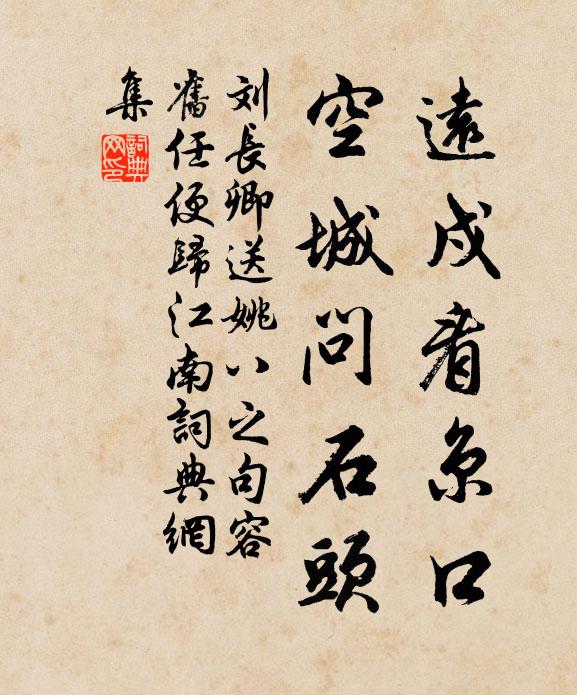 遠戍看京口
空城問石頭
刘長卿送姚八之句容
舊任便歸江南詞典網
集
詞典网印